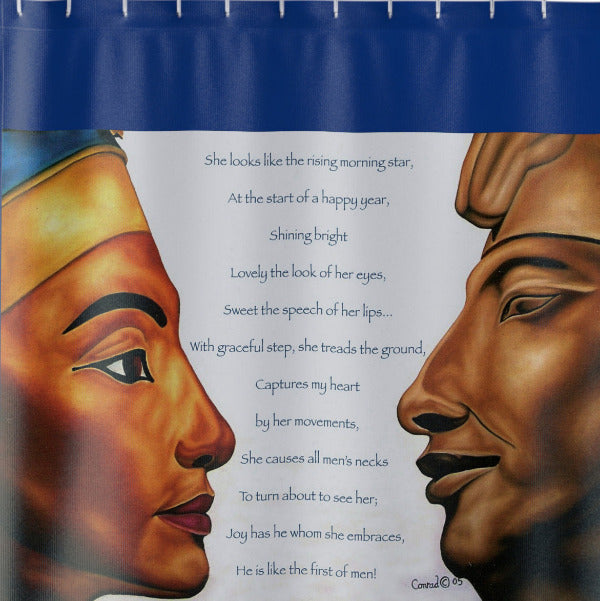 She looks like the rising morning star,
At the start of a happy year,
Shining bright
Lovely the look of her eyes,
Sweet the speech of her lips...
With graceful step, she treads the ground,
Captures my heart
by her movements,
She causes all men's necks
To turn about to see her;
Joy has he whom she embraces,
He is like the first of men!
Conrad © 05